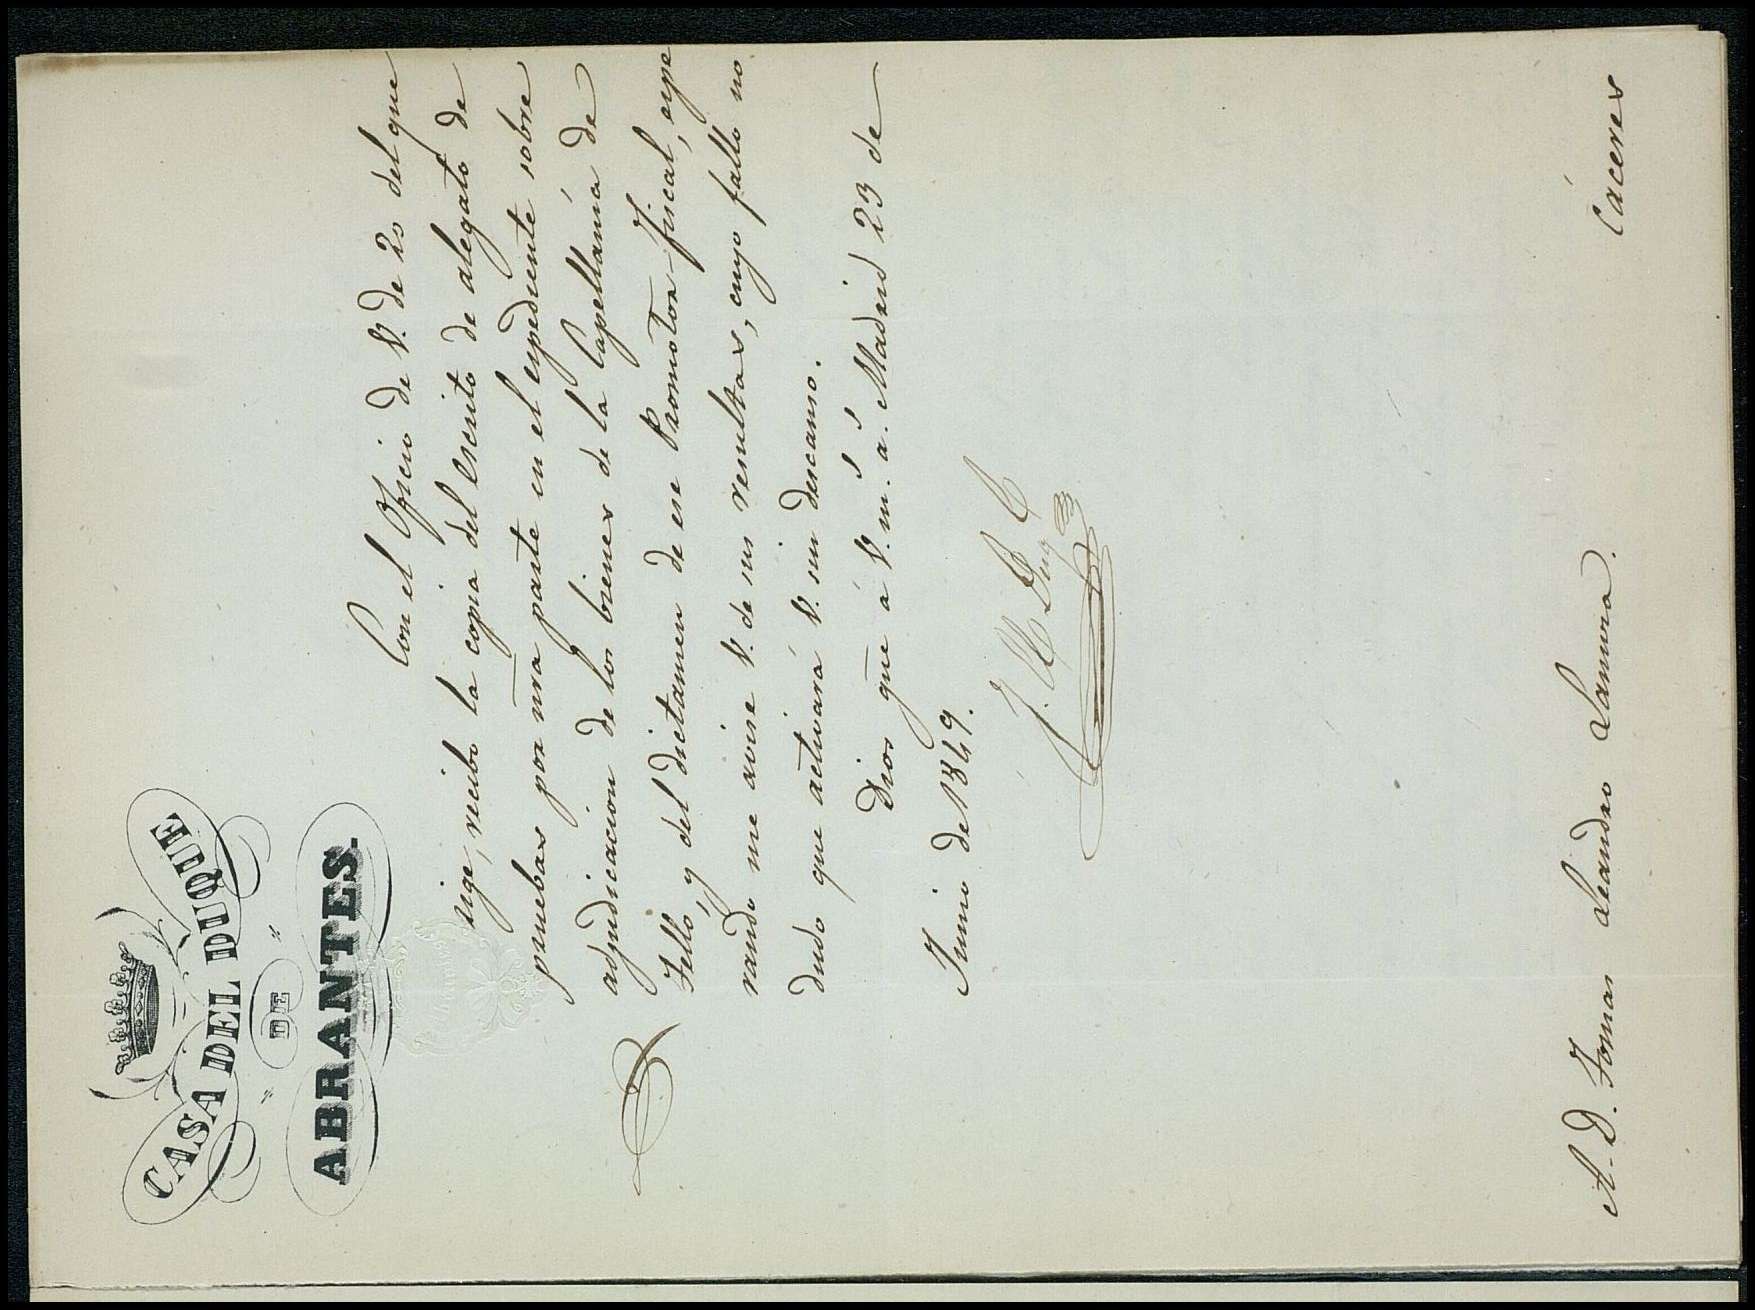 CASA DEL DUQUE
DE
ABRANTES.
Con el Oficio de V. de 20 del que
rige, recibo la copia del escrito de alegato de
pruebas por ñra parte en el espediente sobre
adjudicacion de los bienes de la Capellanía de
Tello, y del dictamen de ese Promotor fiscal, espe
rando me avise V. de sus resultas, cuyo fallo no
dudo que activará V. sin descanso.
Dios gue á V. m.s a.s Madrid 23 de
Junio de 1849.
A. D. Tomas Leandro Lamura. Cáceres